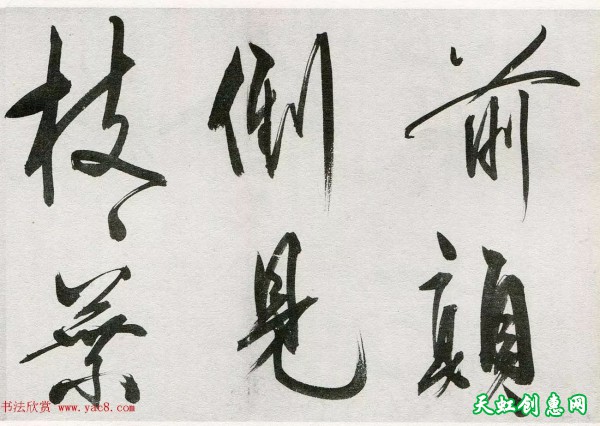 前顛
倒見
枝々葉
书法欣赏 www.yac8.com
天虹创惠网